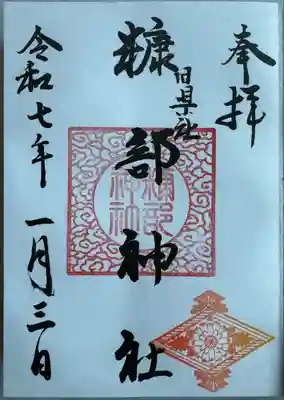 奉拝
旧県社
糠部神社
令和七年一月三日
糠部
神社